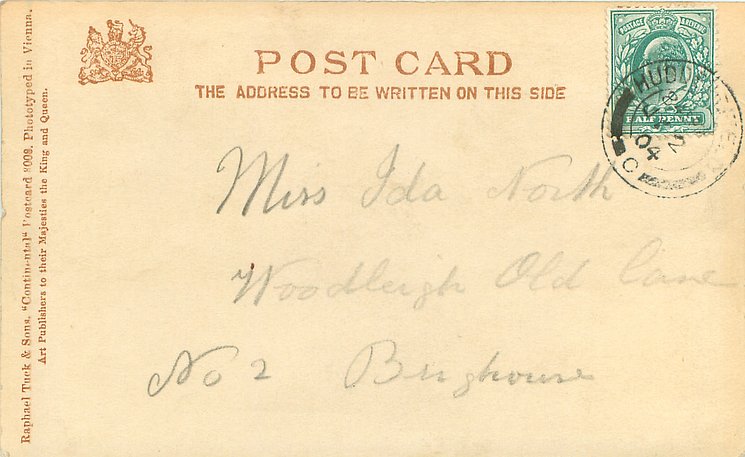 POST CARD
THE ADDRESS TO BE WRITTEN ON THIS SIDE
POSTAGE & REVENUE
HALF PENNY
04
C
Miss Ida North
Woodleigh Old Lane
No 2 Brighouse
Raphael Tuck & Sons. "Continental" Postcard 8008. Phototyped in Vienna.
Art Publishers to their Majesties the King and Queen.